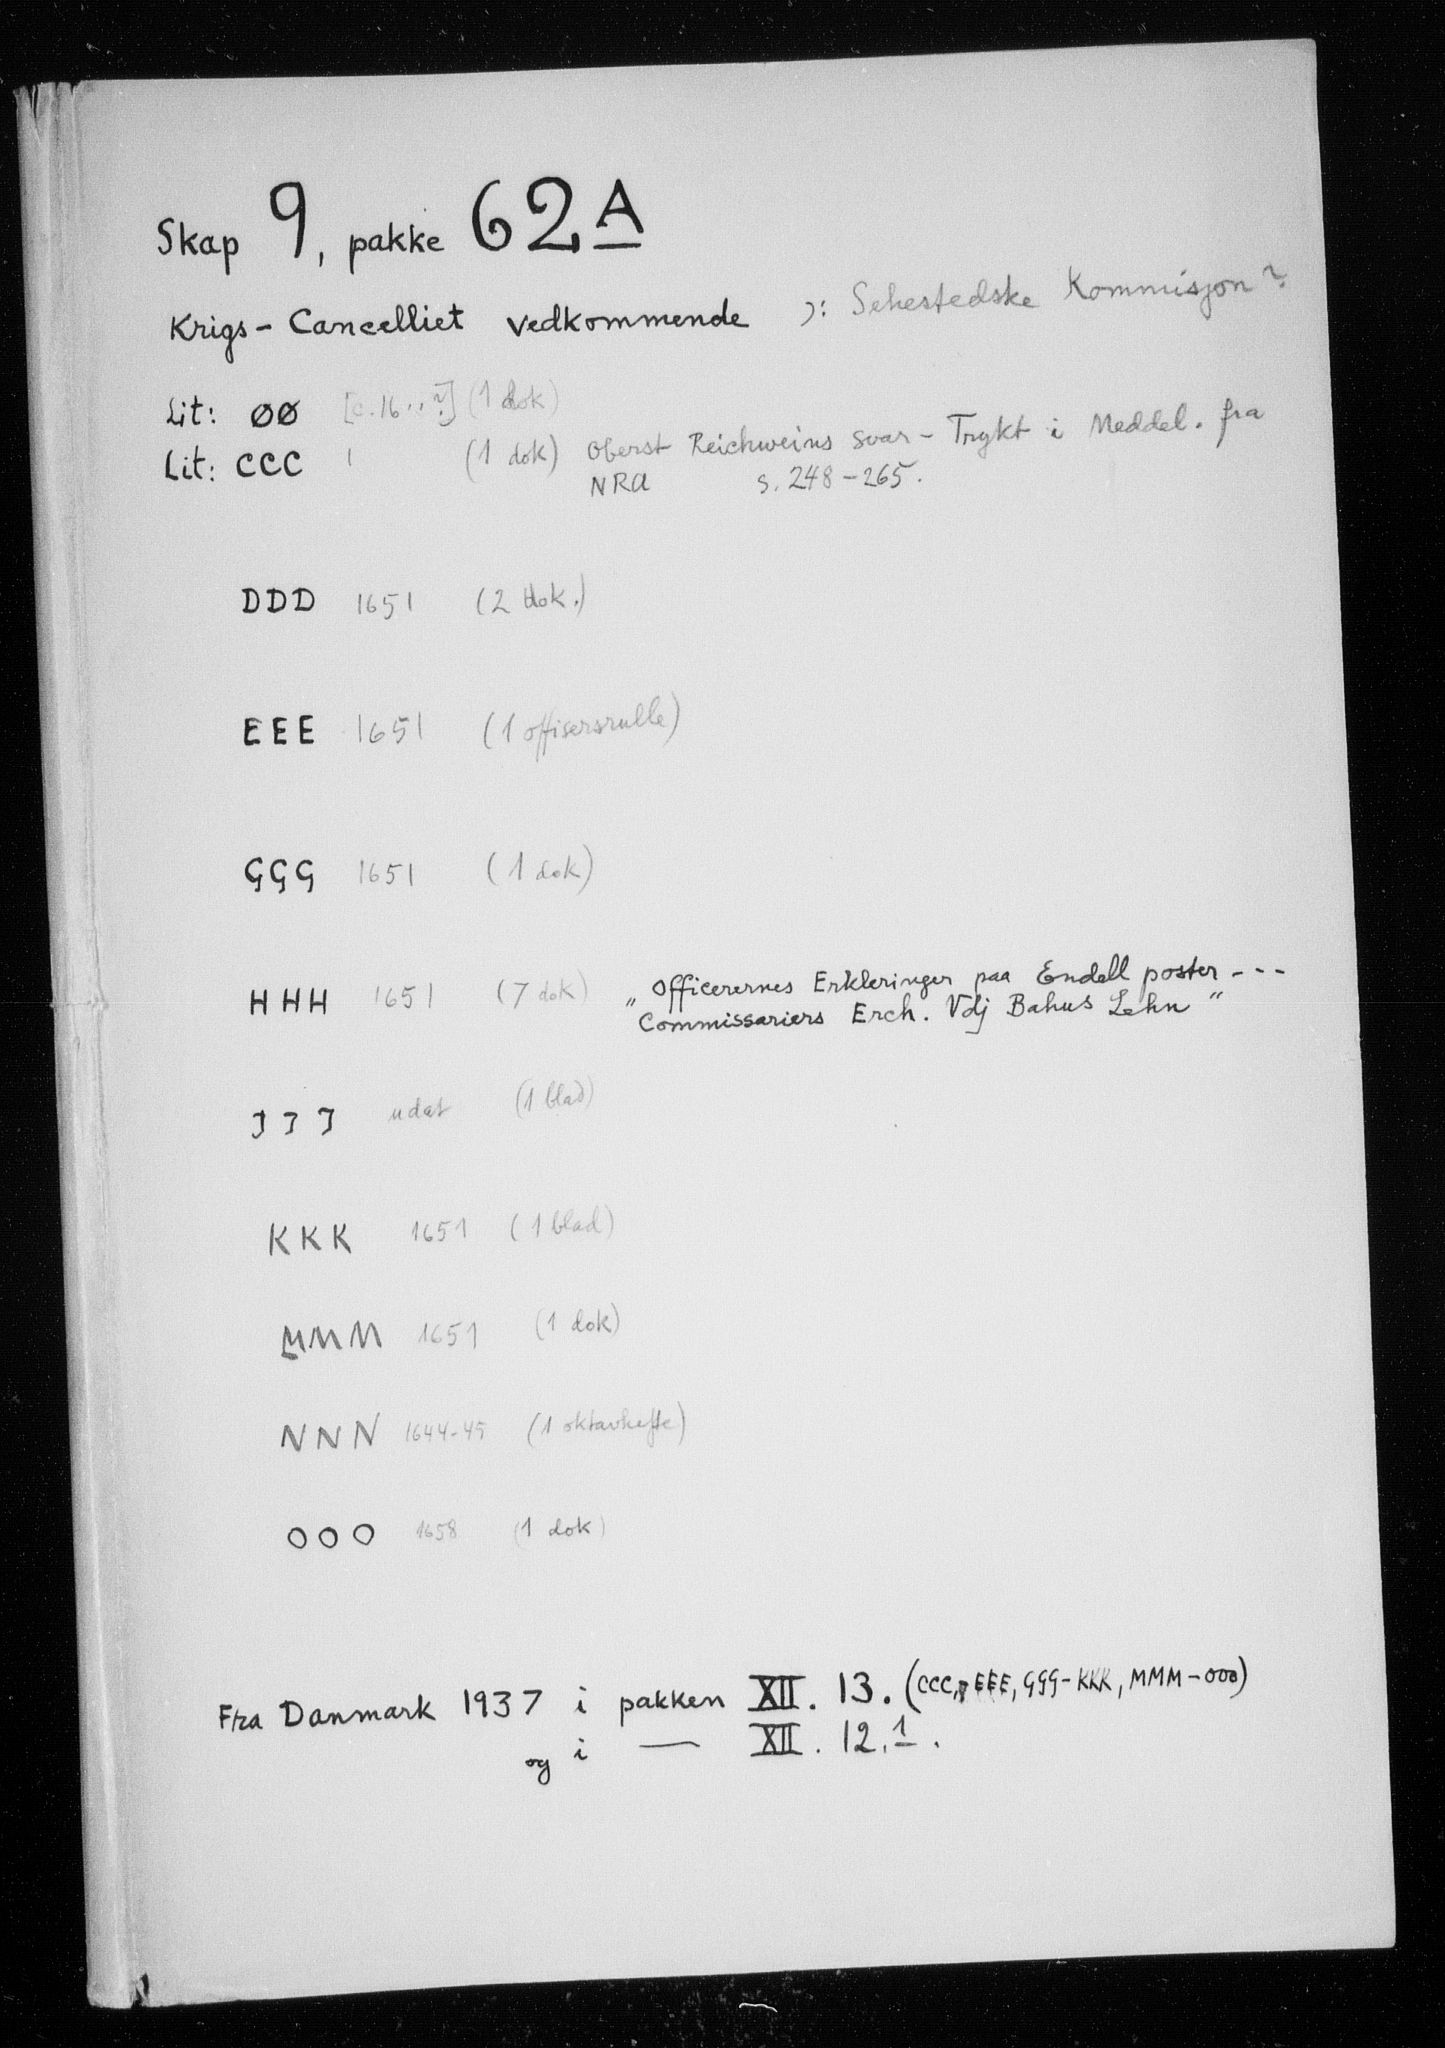 Skap 9, pakke 62 A
Krigs-Cancelliet vedkommende ɔ: Sehestedske Kommisjon?
Lit: ØØ [c.16..?] (1 dok)
Lit: CCC (1 dok) Oberst Reichweins svar - Trykt i Meddel. fra
NRA s. 248-265.
DDD 1651 (2 dok.)
EEE 1651 (1 offisersrulle)
GGG 1651 (1 dok)
HHH 1651 (7 dok) „Officerernes Erkleringer paa Endell poster ---
Commissariers Erch. Vdj Bahus Lehn"
JJJ udat (1 blad)
KKK 1651 (1 blad)
MMM 1651 (1 dok)
NNN 1644-45 (1 oktavhefte)
OOO 1658 (1 dok)
Fra Danmark 1937 i pakken XII. 13. (CCC, EEE, GGG-KKK, MMM-OOO)
og i — XII. 12.1.